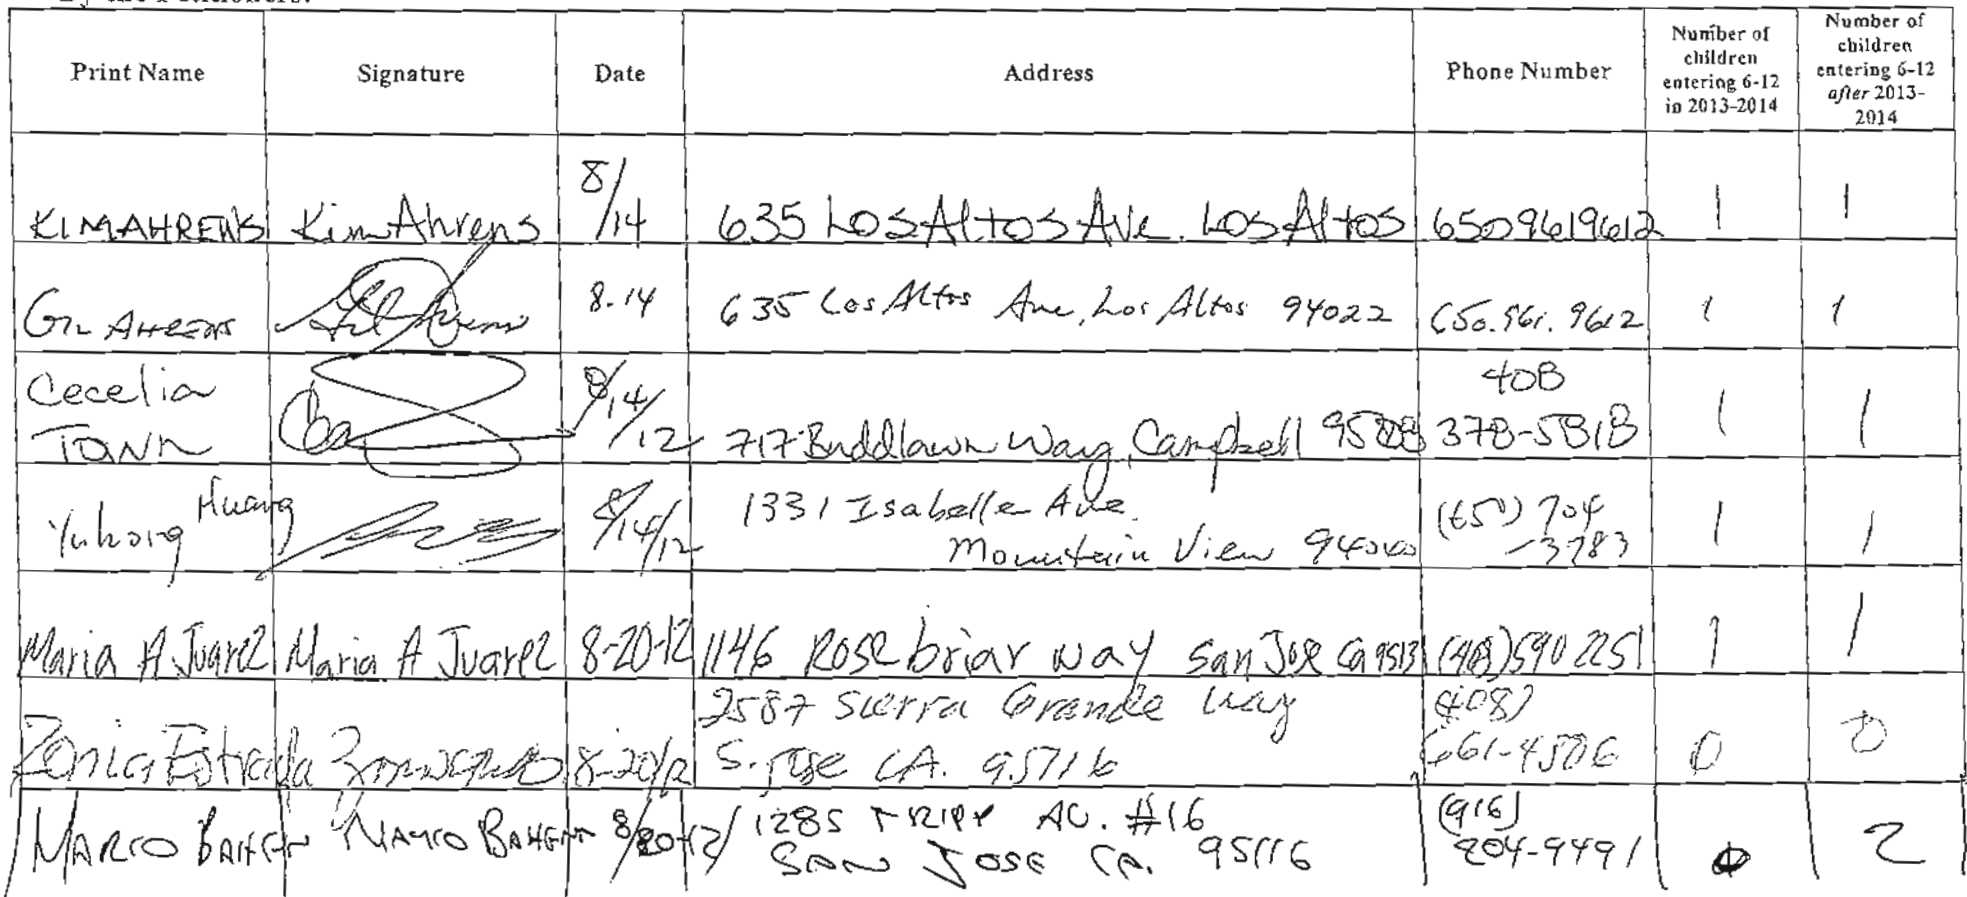 Print Name Signature Date Address Phone Number Number of children entering 6-12 in 2013-2014 Number of children entering 6-12 after 2013-2014
KIM AHRENS Kim Ahrens 8/14 635 Los Altos Ave. Los Altos 6509619612 1 1
GIL AHRENS 8.14 635 Los Altos Ave, Los Altos 94022 650.961.9612 1 1
Cecelia 408
TANN 8/14/12 717 Way, Campbell 378-5818 1 1
Yuhong Huang 8/14/12 1331 Isabelle Ave. (650) 704
Mountain View 94040 -3783 1 1
Maria A Juarez Maria A Juarez 8-20-12 1146 Rosebriar way San Jose Ca 9513 (408)590 2251 1 1
2587 Sierra Grande Way (408)
Estrada 8-20/12 S. Jose CA. 95116 661-4506 0 0
1285 AV. #16 (916)
MARCO Marco 8/20-12/ SAN JOSE CA. 95116 204-9491 0 2